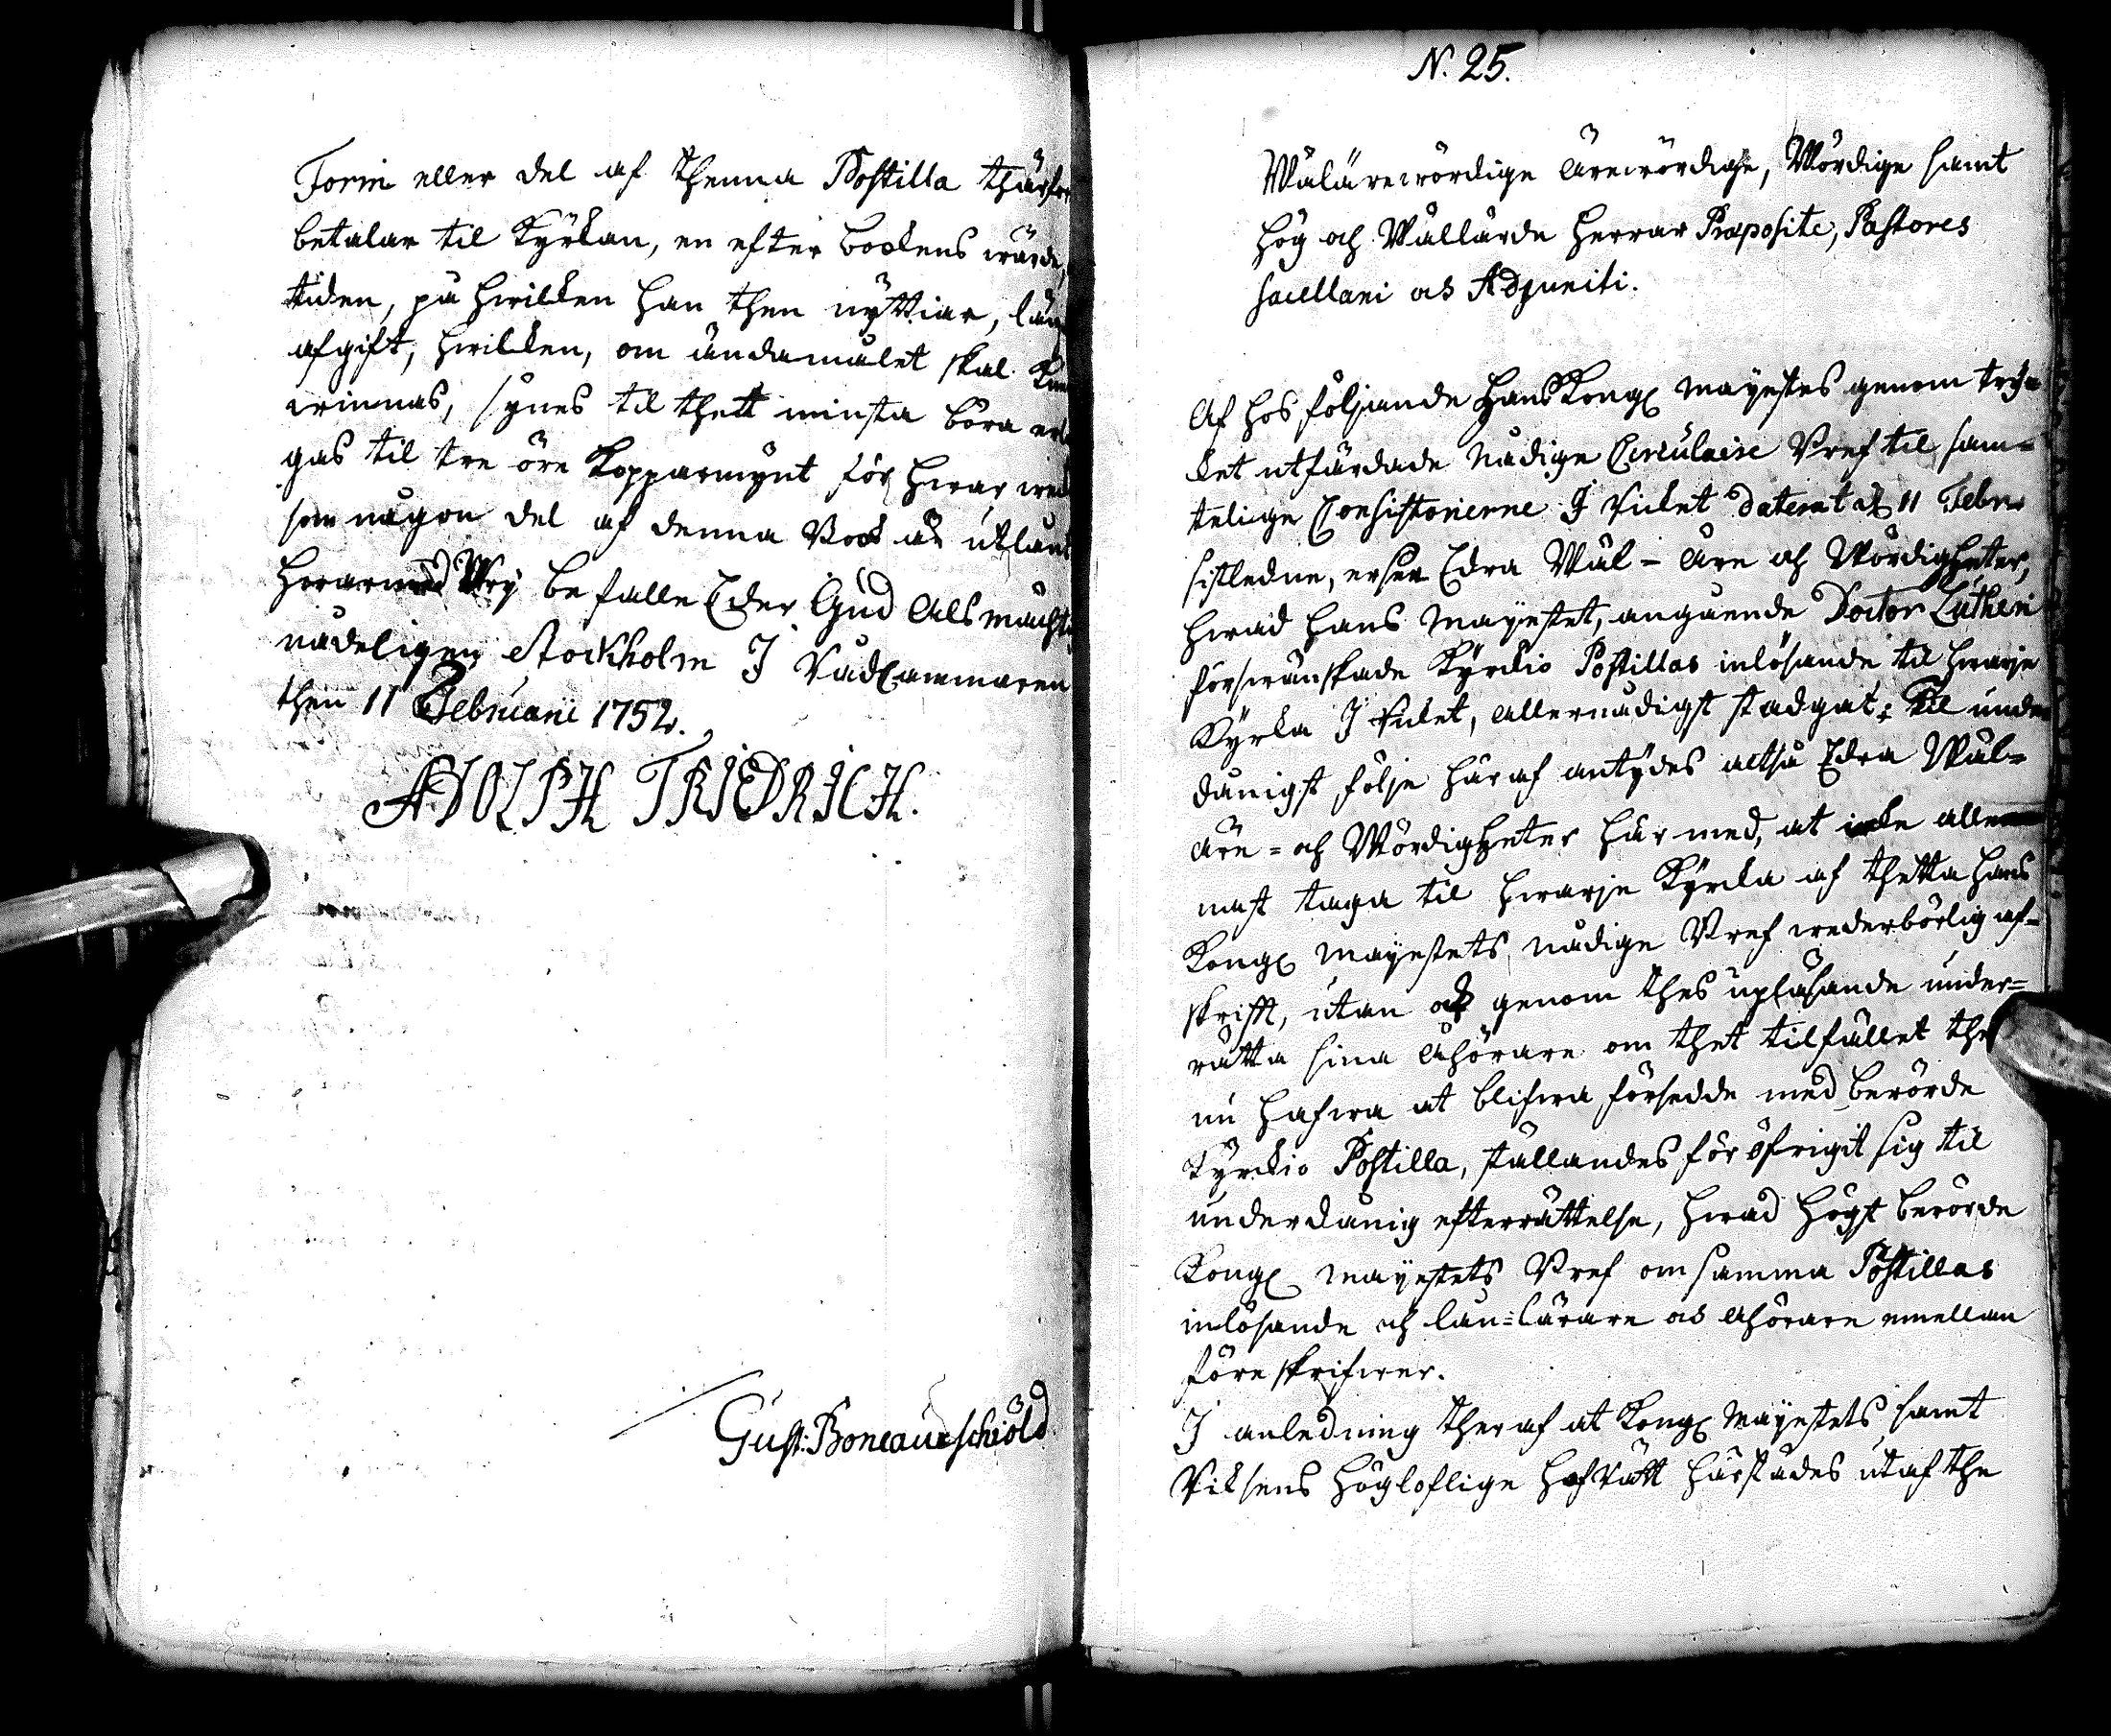 Tom eller del af thenna Postilla thärför
betalar til Kyrkan, en efter bookens wärde,
tiden, på hwilken han then nyttiar, lämp
afgift, hwilken, om ändamålet skal kun
winnas, synes til thett minsta böra er
gas til tre öre Kopparmynt för hwar weck
som någon del af denna Book är utlånt
hwarmed Wij befalle Eder Gud Alsmächtig
nådeligen Stockholm J RådCammaren
then 11 Februarii 1752.
ADOLPH FRIEDRICH.
Gust: Boneauschiöld
N. 25.
Wäl ärewördige Ärewördige, Wördige samt
Hög och Wällärde Herrar Præposite, Pastores
Sacellani och Adjuncti.
Af hos följande Hans Kongl Mayestets genom tryc-
ket utfärdade Nådige Circulaire Bref til sam-
telige Consistorierne J Riket daterat d 11 Febr
sistledne, ersee Edra Wäl- Äre och Wördigheter,
hwad Hans Mayestet, angående Doctor Lutheri
förswänskade Kyrkio Postillas inlösande til hwarje
Kyrka J Riket, allernådigst stadgat; Til under
dånigst följe häraf antydes altså Edra Wäl-
Äre- och Wördigheter här med, at icke alle
nast taga til hwarje Kyrka af thetta Hans
Kongl Mayestets nådige Bref wederbörlig af-
skrift, utan och genom thes upläsande under-
rätta sina Åhörare om thet tilfället the
nu hafwa at blifwa försedde med berörde
Kyrkio Postilla, ställandes för öfrigit sig til
underdånig efterrättelse, hwad högst berörde
Kongl Mayestets Bref om samma Postillas
inlösande och lån-Lärare och Åhörare emellan
föreskrifwer.
J anledning theraf at Kongl Mayestets samt
Riksens Högloflige HofRätt härstädes utaf the